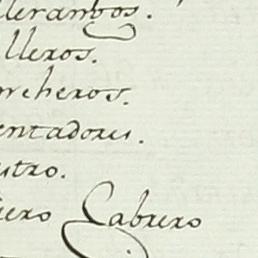 llerambos.
lleros.
rcheros.
entadores.
stro.
iero Cabrero